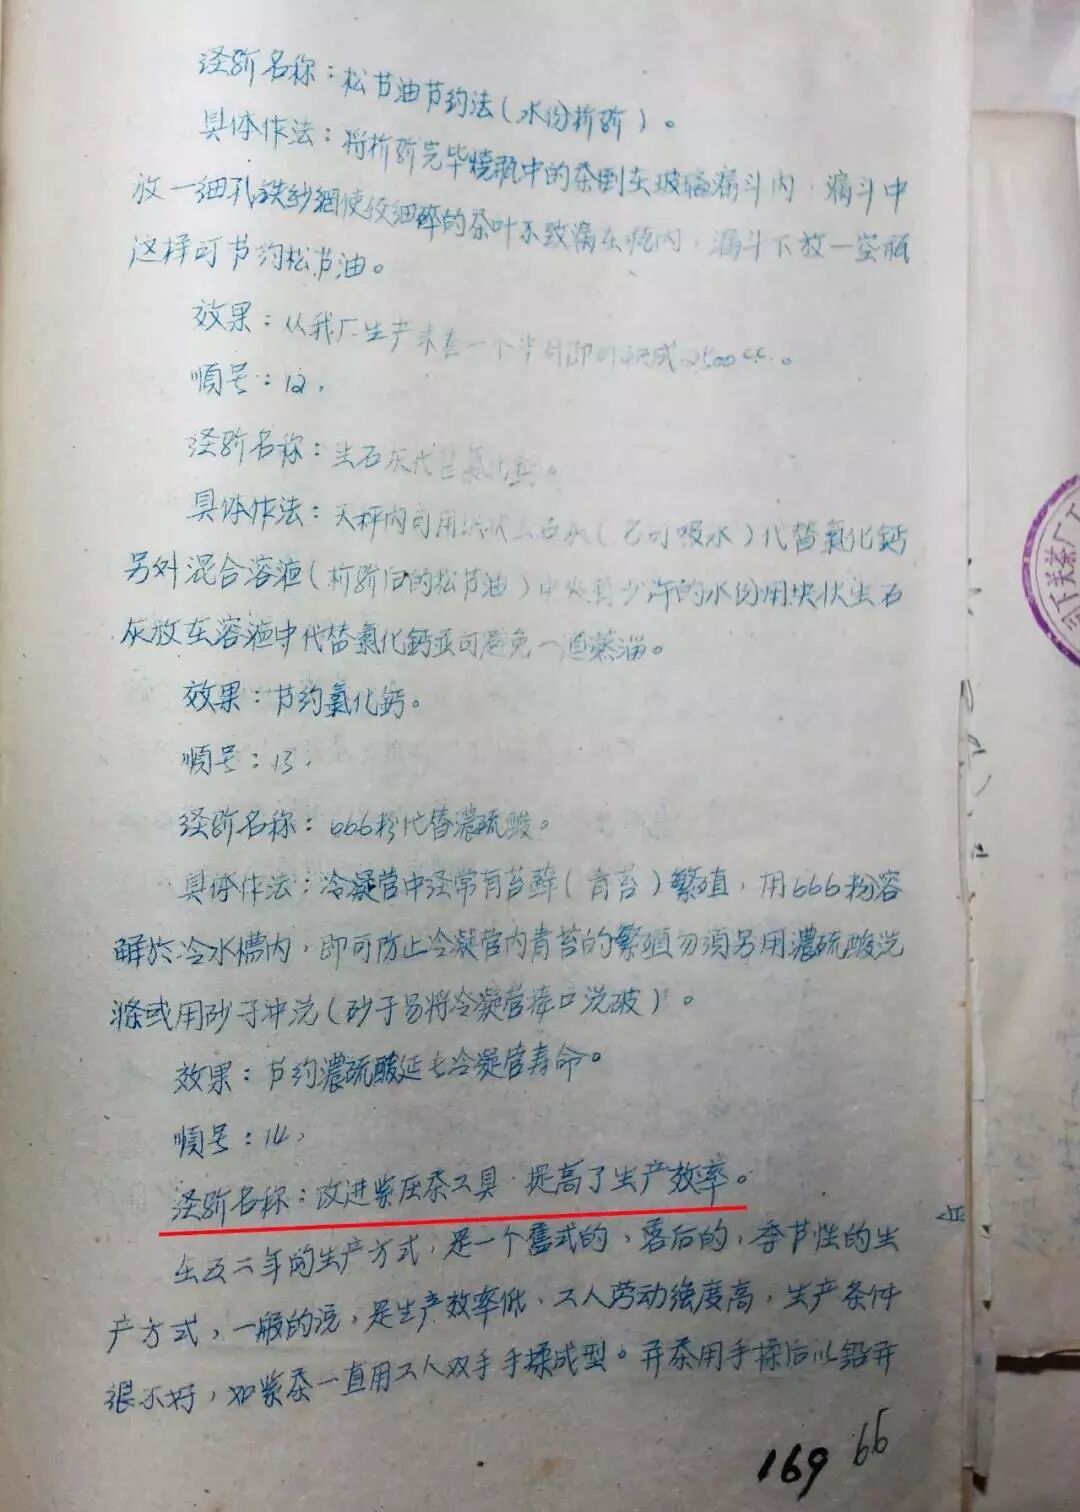 经验名称：松节油节约法（水份析验）。
具体作法：将析验完毕烧瓶中的茶倒在玻璃漏斗内，漏斗中
放一细孔铁纱网使较细碎的茶叶不致漏在瓶内，漏斗下放一空瓶
这样可节约松节油。
效果：从我厂生产来看一个半月即可 成2500cc。
顺号：12，
经验名称：生石灰代替氯化钙。
具体作法：天秤内可用块状生石灰（它可吸水）代替氯化钙
另外混合溶液（析验后的松节油）中夹有少许的水份用块状生石
灰放在溶液中代替氯化钙並可避免一道蒸溜。
效果：节约氯化钙。
顺号：13，
经验名称：666粉代替濃硫酸。
具体作法：冷凝管中经常有苔藓（青苔）繁殖，用666粉溶
解於冷水槽内，即可防止冷凝管内青苔的繁殖勿须另用濃硫酸洗
滌或用砂子冲洗（砂子易将冷凝管接口洗破）。
效果：节约濃硫酸延长冷凝管寿命。
顺号：14，
经验名称：改进紧压茶工具，提高了生产效率。
在五二年的生产方式，是一个舊式的，落后的，季节性的生
产方式，一般的说，是生产效率低，工人劳动强度高，生产条件
很不好，如紧茶一直用工人双手手揉成型。 茶用手揉后以铅
下关茶厂
169 66